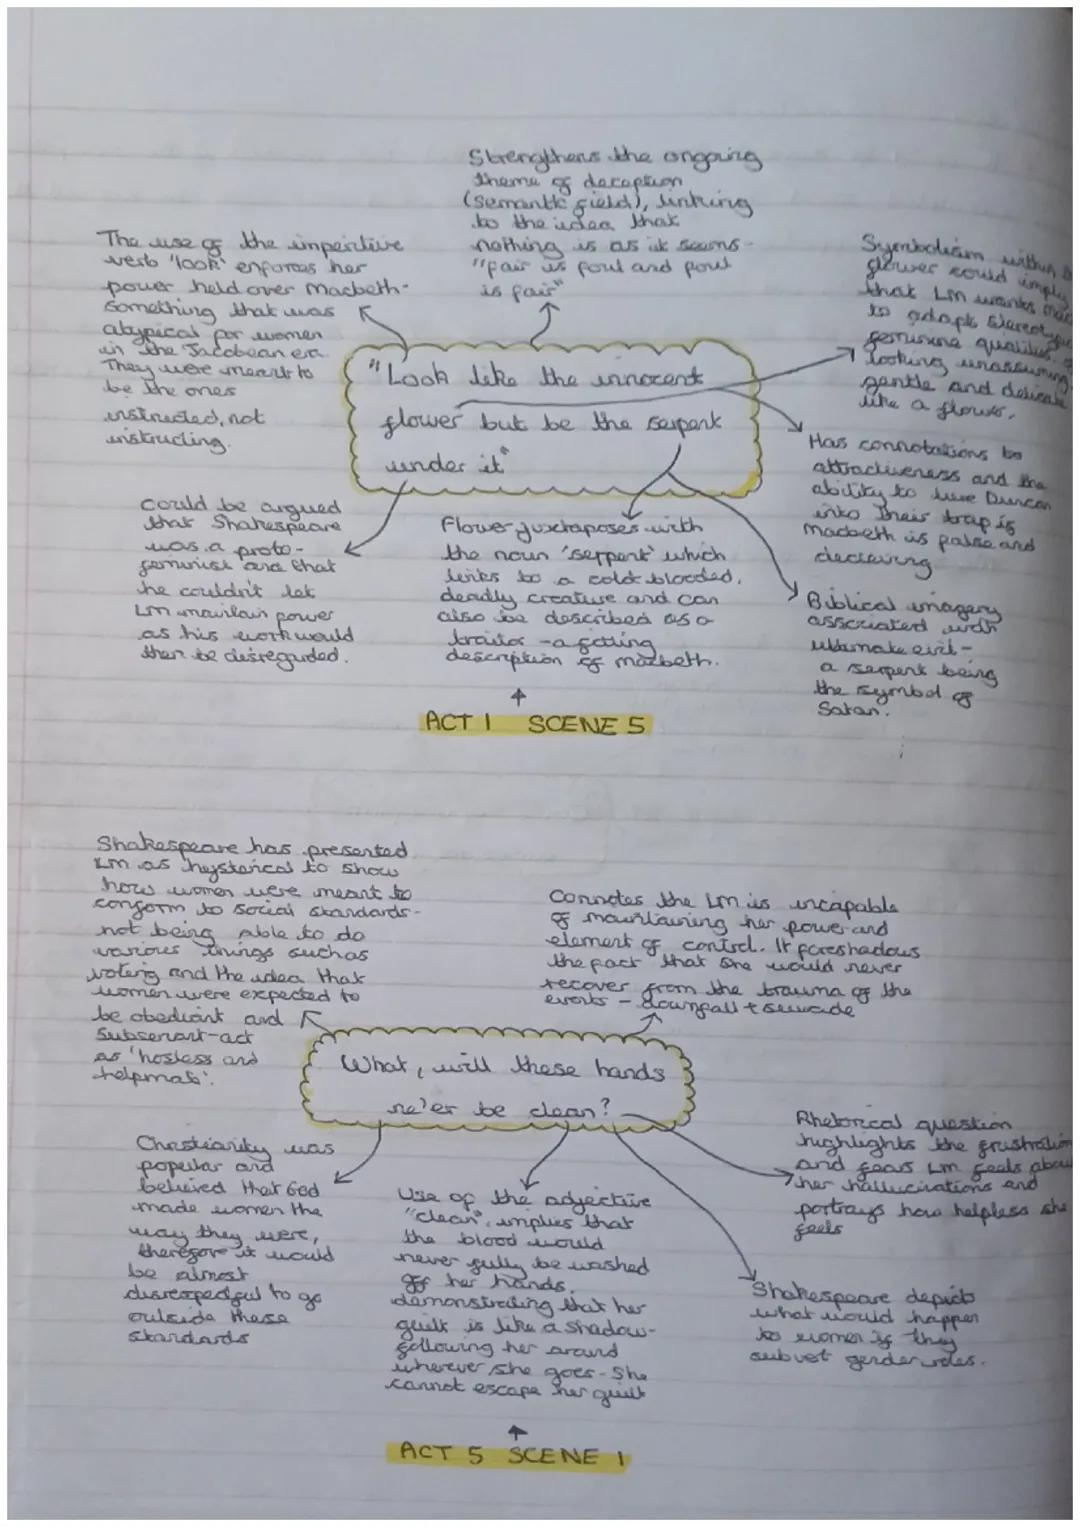 Strengthens the ongoing
theme of deception
(semantic field), linking
to the idea that
nothing is as it seems -
"fair is foul and foul
is fair"
The use of the imperitive
verb 'look' enforces her
power held over Macbeth-
something that was
atypical for women
in the Jacobean era.
They were meant to
be the ones
instructed, not
instructing.
Symbolism within
flower could imply
that LM wants
to adapt
feminine qualities
looking unassuming
gentle and delicate
like a flower.
"Look like the innocent
flower but be the serpent
under it"
Has connotations to
attractiveness and the
ability to lure Duncan
into their trap is
Macbeth is false and
decieving
could be argued
that Shakespeare
was a proto-
feminist and that
he couldn't let
LM maintain power
as his work would
then be disregarded.
Flower juxtaposes with
the noun 'serpent' which
links to a cold blooded,
deadly creature and can
also be described as a
traitor - a fitting
description of macbeth.
Biblical imagery
associated with
ultimate evil -
a serpent being
the symbol of
Satan.
ACT 1 SCENE 5
Shakespeare has presented
LM as hysterical to show
how women were meant to
conform to social standards-
not being able to do
various things such as
voting and the idea that
women were expected to
be obediant and
subservant-act
as 'hostess and
helpmate'.
Connotes the LM is incapable
of maintaining her power and
element of control. It foreshadows
the fact that she would never
recover from the trauma of the
events - downfall + suicide
What, will these hands
ne'er be clean?
Christianity was
popular and
believed that God
made women the
way they were,
therefore it would
be almost
disrespectful to go
outside these
standards
Use of the adjective
"clean", implies that
the blood would
never fully be washed
off her hands,
demonstrating that her
guilt is like a shadow-
following her around
wherever she goes - She
cannot escape her guilt
Rhetorical question
highlights the frustration
and fears LM feels about
her hallucinations and
portrays how helpless she
feels
Shakespeare depicts
what would happen
to women if they
subvet gender roles.
ACT 5 SCENE 1